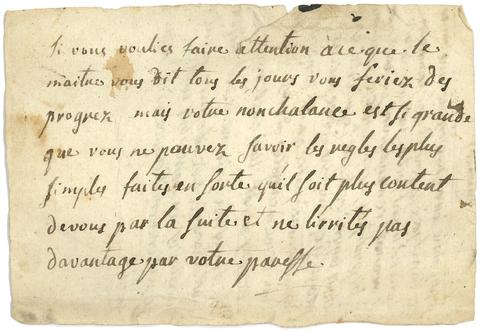 Si vous voulies faire attention a ce que le
maitre vous Dit tous les jours vous feriez des
progrez mais votre nonchalance est si grande
que vous ne pouvez savoir les regles les plus
simples faites en sorte quil soit plus content
de vous par la suite et ne lirrités pas
davantage par votre paresse